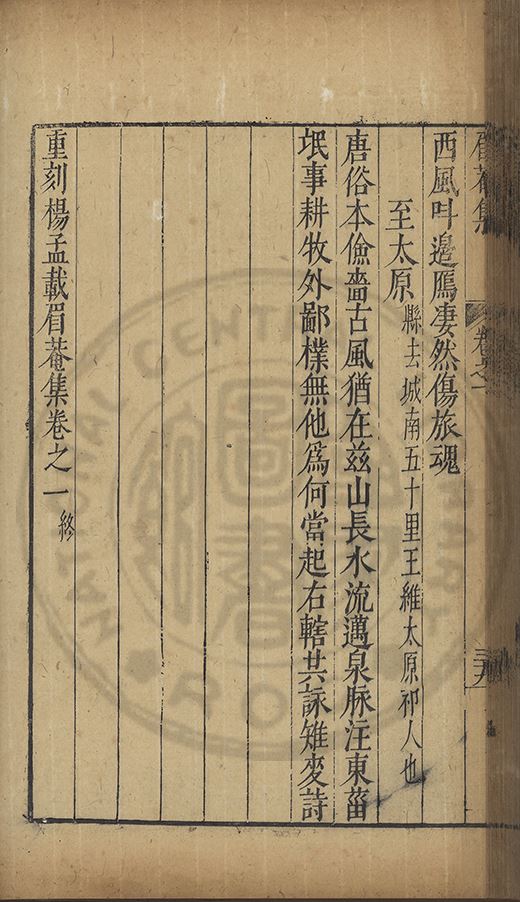 眉菴集
卷之一
西風叫邉鴈凄然傷旅魂
至太原縣去城南五十里王維太原祁人也
唐俗本儉嗇古風猶在兹山長水流邁泉脉注東菑
氓事耕牧外鄙樸無他為何當起右轄共詠雉麥詩
重刻楊孟載眉菴集卷之一終